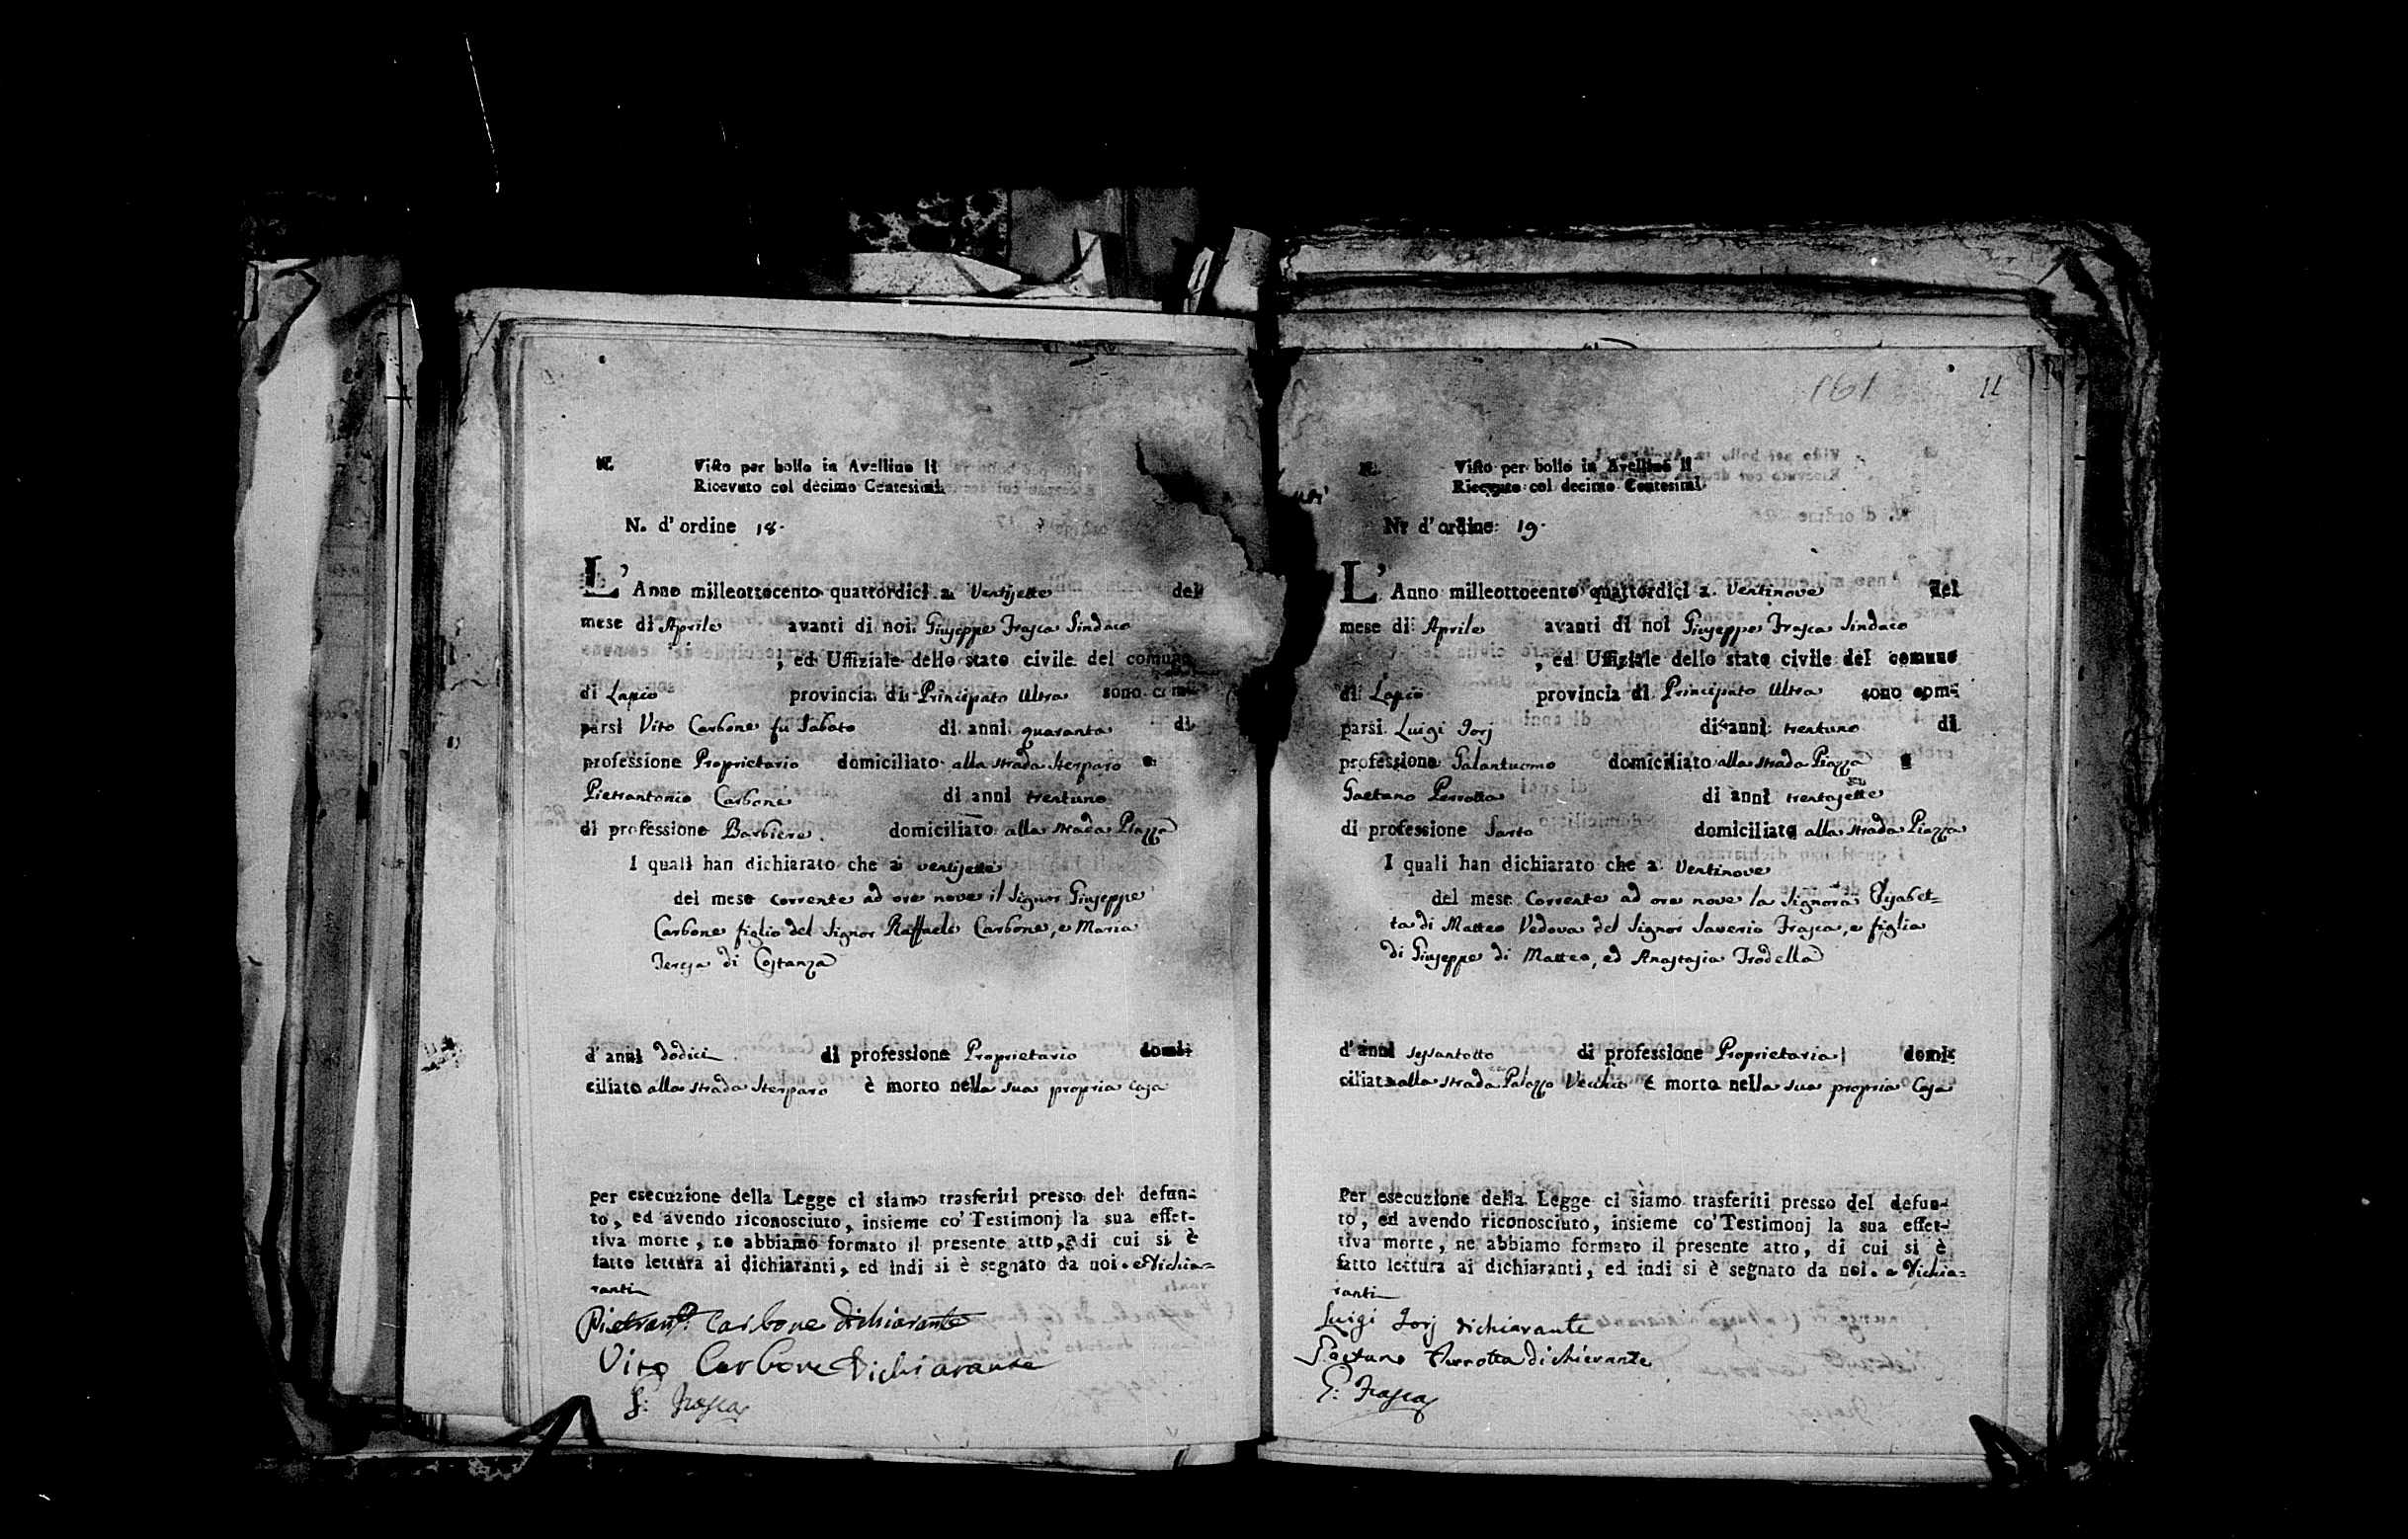 N.
Visto per bollo in Avellino li
Ricevuto col decimo Centesimi
N. d'ordine 18.
L'Anno milleottocento quattordici a Ventisette del
mese di Aprile avanti di noi Giuseppe Frasca Sindaco
, ed Uffiziale dello stato civile del comune
di Lapio provincia di Principato Ultra sono com-
parsi Vito Carbone fu Sabato di anni quaranta di
professione Proprietario domiciliato alla strada Sterparo e
Pietrantonio Carbone di anni trentuno
di professione Barbiere domiciliato alla strada Piazza
I quali han dichiarato che a ventisette
del mese corrente ad ore nove il Signor Giuseppe
Carbone figlio del Signor Raffaele Carbone, e Maria
Teresa di Costanza
d'anni dodici di professione Proprietario domi-
ciliato alla strada Sterparo è morto nella sua propria Casa
per esecuzione della Legge ci siamo trasferiti presso del defun-
to, ed avendo riconosciuto, insieme co' Testimonj la sua effet-
tiva morte, ne abbiamo formato il presente atto, di cui si è
fatto lettura ai dichiaranti, ed indi si è segnato da noi. e Dichia=
ranti
Pietrant.o Carbone dichiarante
Vito Carbone Dichiarante
G: Frasca
161 11
N.
Visto per bollo in Avellino li
Ricevuto col decimo Centesimi
N. d'ordine 19.
L'Anno milleottocento quattordici a Ventinove del
mese di Aprile avanti di noi Giuseppe Frasca Sindaco
, ed Uffiziale dello stato civile del comune
di Lapio provincia di Principato Ultra sono com-
parsi Luigi Jorj di anni trentuno di
professione Galantuomo domiciliato alla strada Piazza e
Gaetano Perrotta di anni trentasette
di professione Sarto domiciliato alla strada Piazza
I quali han dichiarato che a Ventinove
del mese Corrente ad ore nove la Signora Elisabet=
ta di Matteo Vedova del Signor Saverio Frasca, e figlia
di Giuseppe di Matteo, ed Anastasia Trodella
d'anni sessantotto di professione Proprietaria domi-
ciliata alla strada Palazzo Vecchio è morta nella sua propria Casa
per esecuzione della Legge ci siamo trasferiti presso del defun-
to, ed avendo riconosciuto, insieme co' Testimonj la sua effet-
tiva morte, ne abbiamo formato il presente atto, di cui si è
fatto lettura ai dichiaranti, ed indi si è segnato da noi. e Dichia=
ranti
Luigi Jorj dichiarante
Gaetano Perrotta dichiarante
G: Frasca